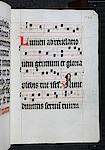 Lumen ad revelatio
nem gentium et gloria
plebis tue isrl. Nunc
dimittis servum tuum